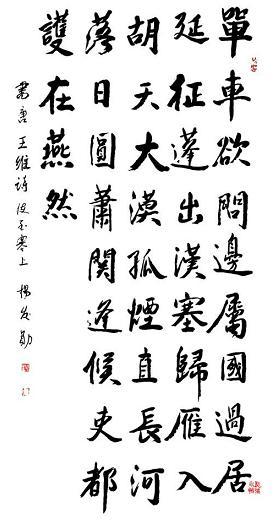 單車欲問邊屬國過居
延征蓬出漢塞歸雁入
胡天大漠孤煙直長河
落日圓蕭關逢候吏都
護在燕然
書唐王維詩使至塞上 楊勛